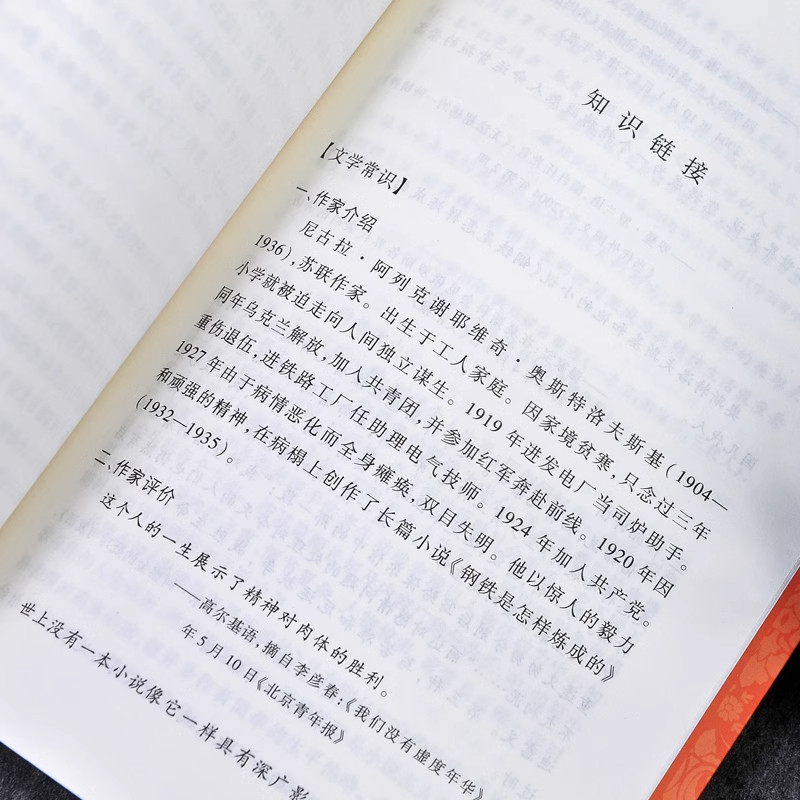 知识链接
【文学常识】
一、作家介绍
尼古拉·阿列克谢耶维奇·奥斯特洛夫斯基(1904—
1936),苏联作家。出生于工人家庭。因家境贫寒,只念过三年
小学就被迫走向人间独立谋生。1919年进发电厂当司炉助手。
同年乌克兰解放,加入共青团,并参加红军奔赴前线。1920年因
重伤退伍,进铁路工厂任助理电气技师。1924年加入共产党。
1927年由于病情恶化而全身瘫痪,双目失明。他以惊人的毅力
和顽强的精神,在病榻上创作了长篇小说《钢铁是怎样炼成的》
(1932—1935)。
二、作家评价
这个人的一生展示了精神对肉体的胜利。
——高尔基语,摘自李彦春:《我们没有虚度年华》
年5月10日《北京青年报》
世上没有一本小说像它一样具有深广影